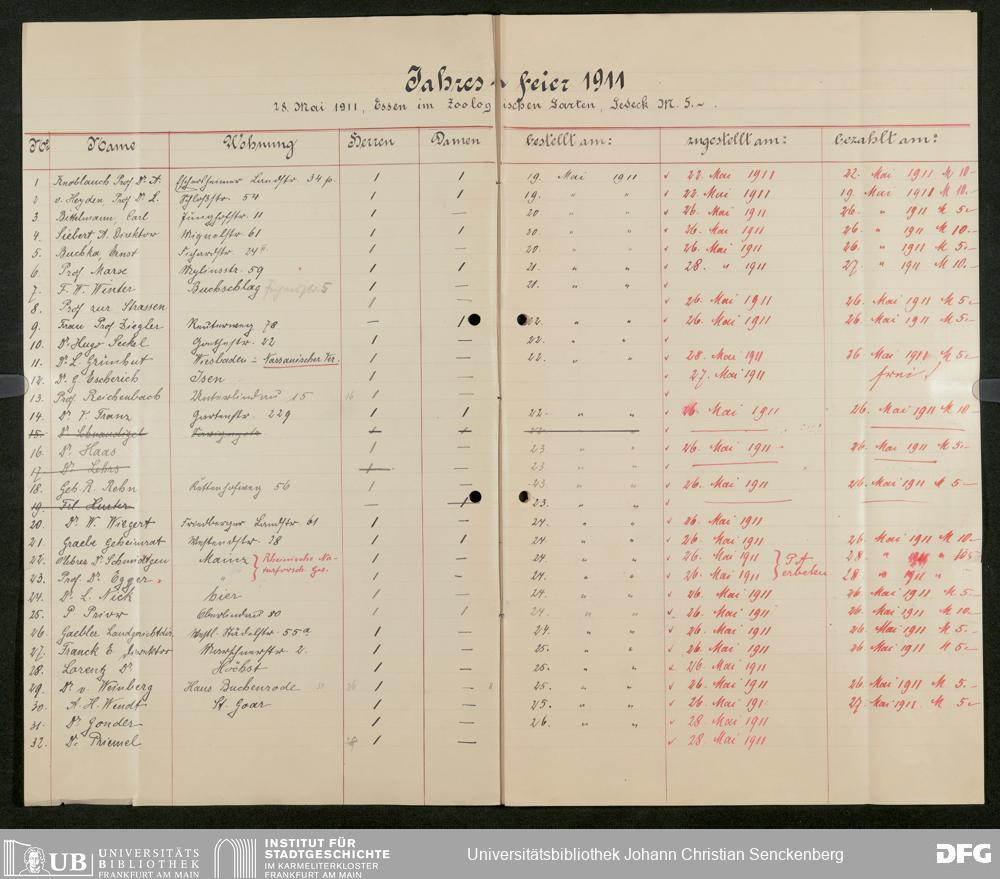 Jahres-feier 1911
28. Mai 1911, Essen im Zoologischen Garten, Gedeck M. 5.-.
No Name Wohnung Herren Damen bestellt am: zugestellt am: bezahlt am:
1 Knoblauch Prof Dr A. Eschersheimer Landstr. 34 p. 1 1 19. Mai 1911 22 Mai 1911 22. Mai 1911 M 10-
2 v. Heyden, Prof Dr L. Schloßstr. 54 1 1 19. " " 22 Mai 1911 19. Mai 1911 M 10.-
3. Bittelmann, Carl Junghofstr. 11 1 — 20 " " 26. Mai 1911 26. " 1911 M 5.-
4. Siebert A. Direktor 61 1 1 20 " " 26. Mai 1911 26. " 1911 M 10.-
5. Buchka, Ernst Fichardstr. 24 1 — 20. " " 26. Mai 1911 26. " 1911 M 5.-
6. Prof Marx 59 1 1 21. " " 28. " 1911 27. " 1911 M 10.-
7. F. W. Winter Buchschlag 5 1 — 21. " "
8. Prof zur Strassen 1 — 26. Mai 1911 26. Mai 1911 M 5.-
9. Frau Prof Ziegler Reuterweg 78 — 1 22. " " 26. Mai 1911 26. Mai 1911 M 5.-
10. Dr. Hugo Seckel Goethestr. 22 1 — 22. " "
11. Dr. L. Grünhut Wiesbaden - Nassauischer Ver. 1 — 22. " " 28. Mai 1911 26 Mai 1911 M 5.-
12. Dr. G. Escherich Isen 1 — 27. Mai 1911 frei
13. Prof. Reichenbach Unterlindau 15 16 1 —
14. Dr V. Franz Gartenstr. 229 1 1 22. " " 26. Mai 1911 26. Mai 1911 M 10
15. Dr 1 1
16. Dr. Haas 1 — 23 " " 26 Mai 1911 26 Mai 1911 M 5.-
17 Dr. Lehrs 1 — 23 " "
18. Geh. R. Rehn Kettenhofweg 56 1 — 23 " " 26. Mai 1911 26. Mai 1911 M 5.-
19. Frl. — 1 23. " "
20. Dr. W. Wiegert Friedberger Landstr 61 1 — 24. " " 26. Mai 1911
21. Graebe Geheimrat Westendstr. 28 1 1 24. " " 26. Mai 1911 26. Mai 1911 M 10-
22. Dr. Schmidtgen Mainz Rheinische Na- 1 — 24. " " 26. Mai 1911 P.A. 28. " "
23. Prof. Dr. Egger " turforsch. Ges. 1 — 24. " " 26. Mai 1911 erbeten 28. " 1911 "
24. Dr. L. Nick hier 1 — 24. " " 26. Mai 1911 26. Mai 1911 M 5.-
25. P Prior Oberlindau 80 1 1 24. " " 26. Mai 1911 26. Mai 1911 M 10.-
26. Gaebler Landgerichtsdir. Westl. 55a 1 — 24. " " 26. Mai 1911 26. Mai 1911 M 5.-
27. Franck E Direktor 2 1 — 25. " " 26. Mai 1911 26 Mai 1911 M 5.-
28. Lorenz Dr Höchst 1 — 25. " " 26 Mai 1911
29. Dr v. Weinberg Haus Buchenrode 26 1 — 25. " " 26. Mai 1911 26. Mai 1911 M 5.-
30. A. H. Wendt St. Goar 1 — 25. " " 26. Mai 191 27. Mai 1911 M 5.-
31. Dr. Gonder 1 — 26. " " 28 Mai 1911
32. Dr. Priemel 1 — 28. Mai 1911
UB UNIVERSITÄTS
BIBLIOTHEK
FRANKFURT AM MAIN
INSTITUT FÜR
STADTGESCHICHTE
IM KARMELITERKLOSTER
FRANKFURT AM MAIN
Universitätsbibliothek Johann Christian Senckenberg
DFG